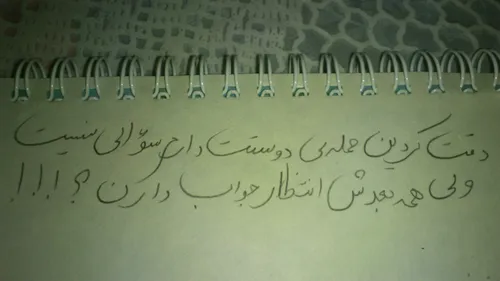 دقت کردین جمله‌ی دوستت دارم سؤالی نیست
ولی همه بعدش انتظار جواب دارن ؟!!!